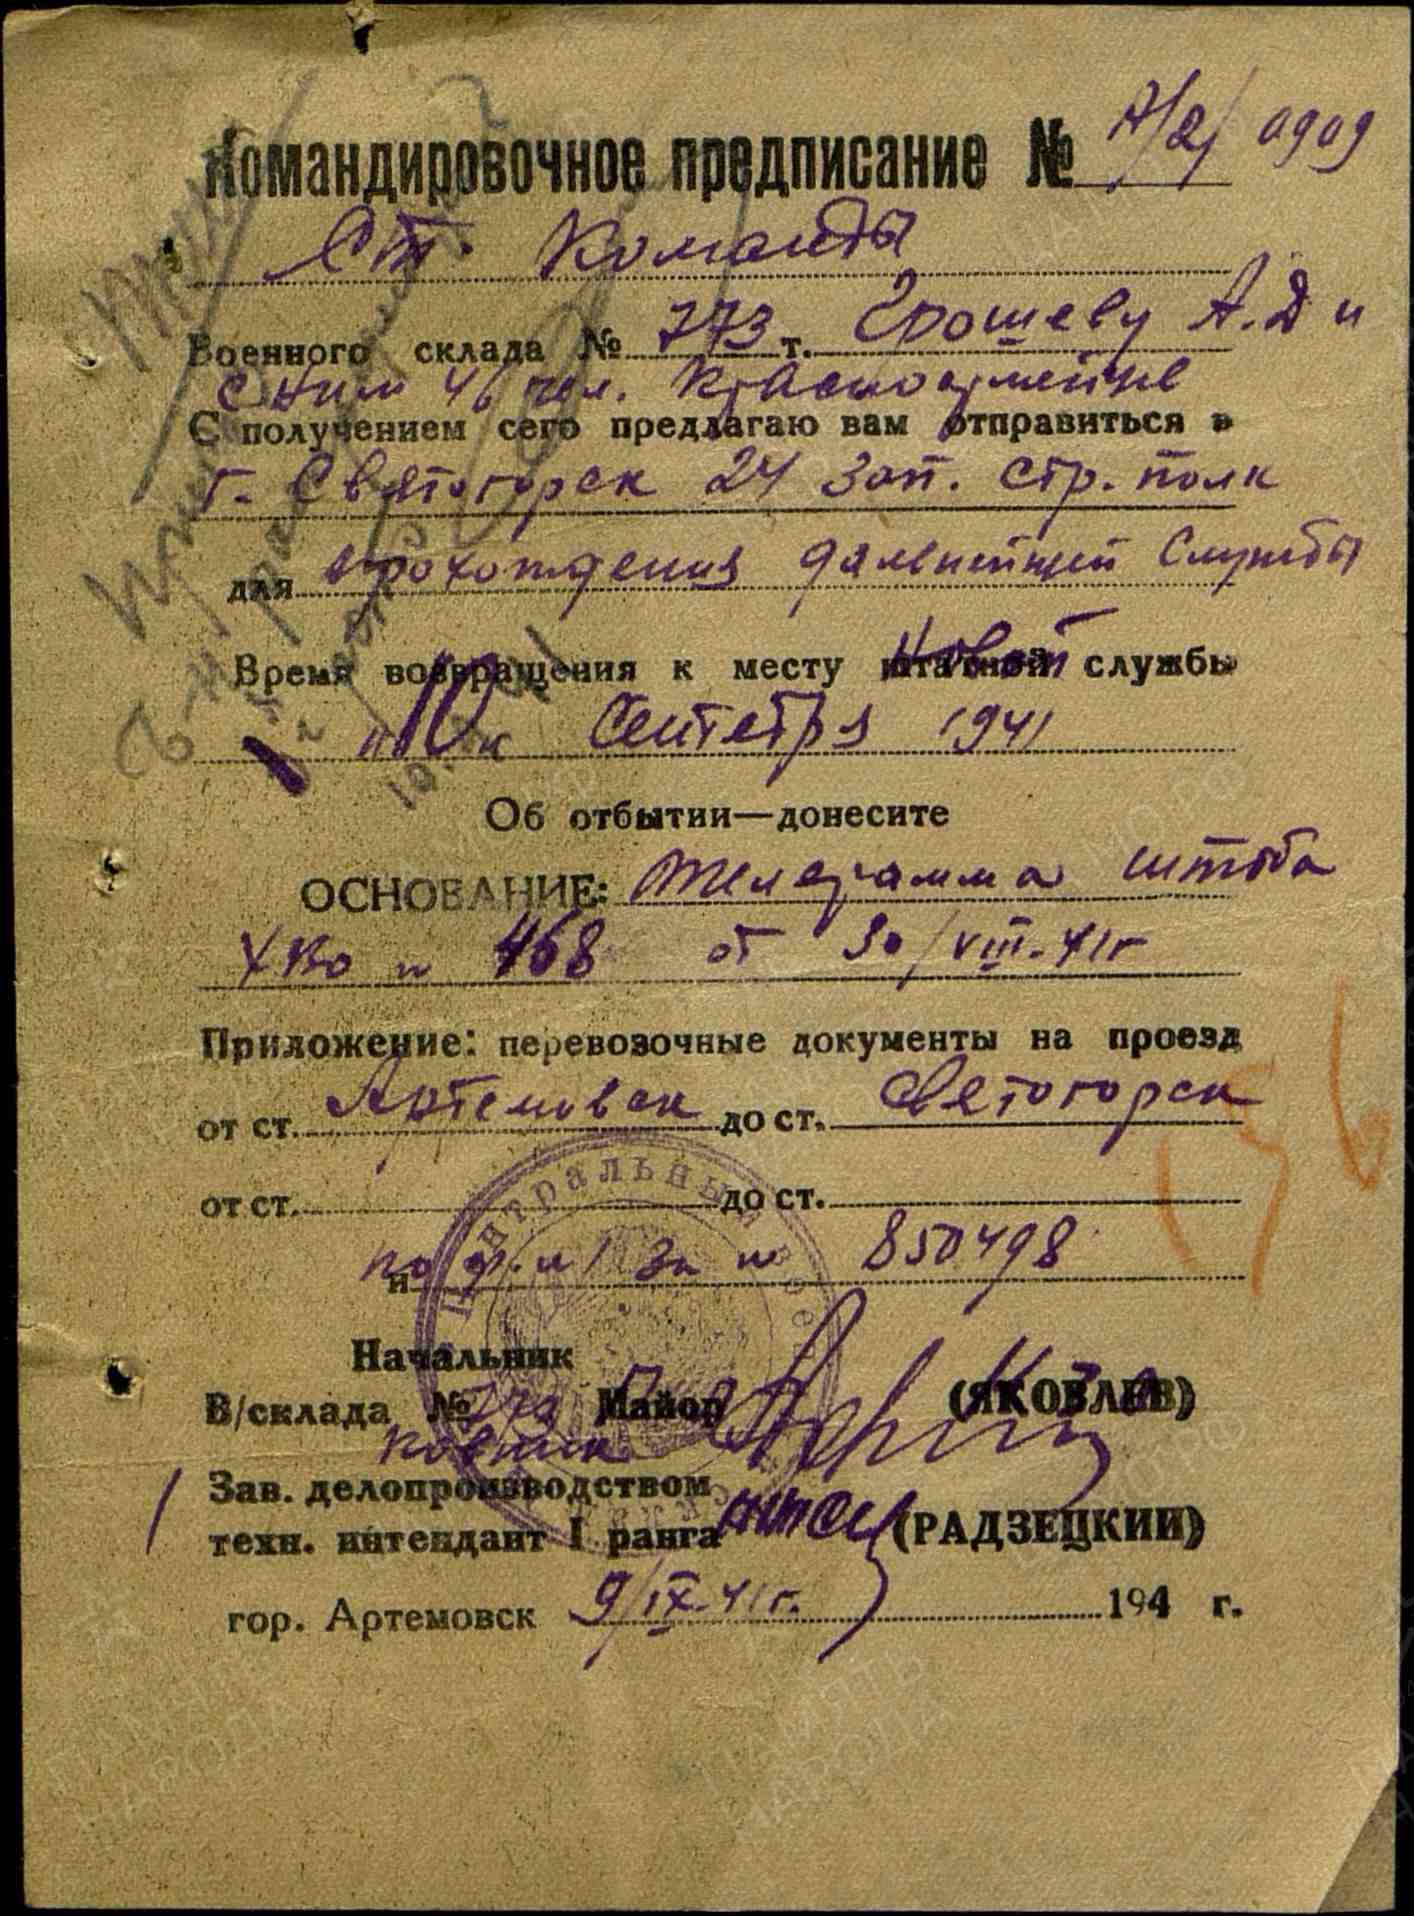 Командировочное предписание № А/2/0909
Ст. Команды
Военного склада № 773 т. Ерошеву А.Д и
с ним 46 чел. красноармейцев
С получением сего предлагаю вам отправиться в
г. Святогорск 24 зап. стр. полк
для прохождения дальнейшей службы
Время возвращения к месту штатной службы
Новой
"10" Сентебря 1941
Об отбытии—донесите
ОСНОВАНИЕ: телеграмма штаба
ХВО № 468 от 30/VIII-41г
Приложение: перевозочные документы на проезд
от ст. Артемовск до ст. Святогорск
от ст. до ст.
и по ф. № 1 за № 850498
Начальник
В/склада № 773 Майор (ЯКОВЛЕВ)
Зав. делопроизводством
техн. интендант I ранга (РАДЗЕЦКИЙ)
гор. Артемовск 9/IX-41г. 194 г.